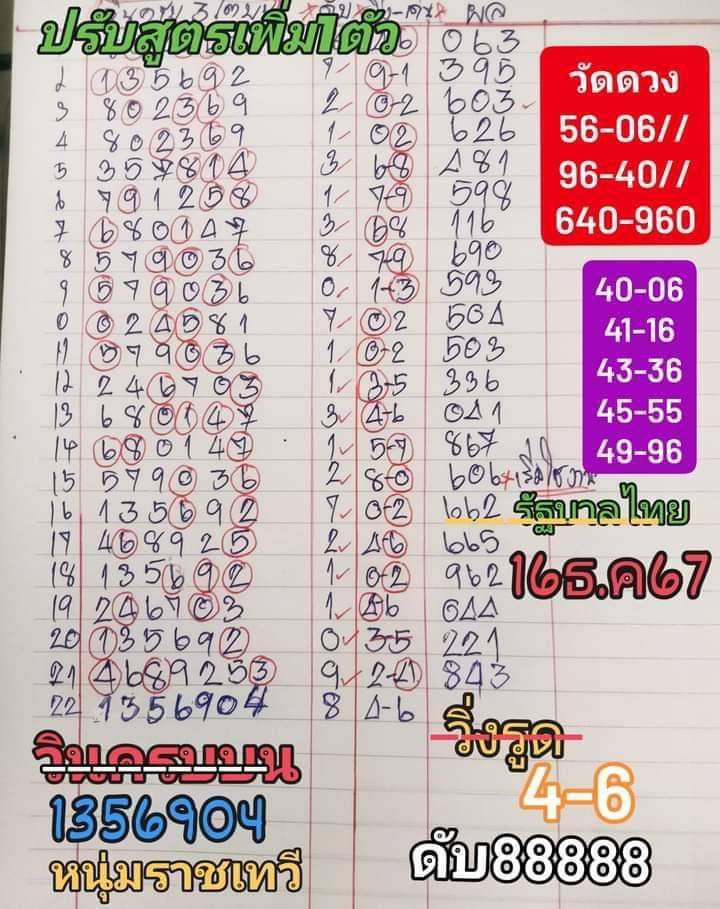 ปรับสูตรเพิ่ม1ตัว
ผล
6 063
2 135692 7 9-1 395
3 802369 2 0-2 603
4 802369 1 02 626
5 357814 3 6-8 481
6 791258 1 7-9 598
7 680147 3 68 116
8 579036 8 7-9 690
9 579036 0 1-3 593
0 024581 7 02 504
11 579036 1 0-2 503
12 246703 1 3-5 336
13 680147 3 4-6 041
14 680147 1 5-7 867
15 579036 2 8-0 606
16 135692 7 0-2 662
17 468925 2 4-6 665
18 135692 1 0-2 962
19 246703 1 46 044
20 135692 0 3-5 221
21 4689253 9 2-4 843
22 1356904 8 4-6
วัดดวง
56-06//
96-40//
640-960
40-06
41-16
43-36
45-55
49-96
รัฐบาลไทย
16ธ.ค67
วินครบบน
1356904
หนุ่มราชเทวี
วิ่งรูด
4-6
ดับ88888